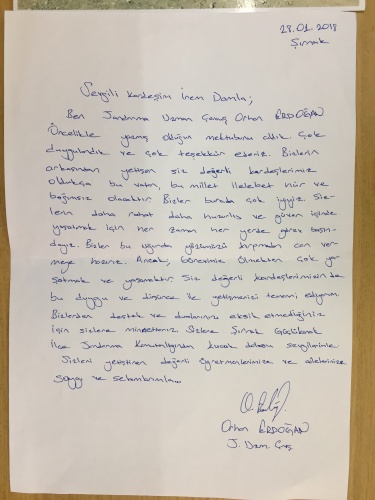 28.01.2018
Şırnak
Sevgili Kardeşim İrem Damla;
Ben Jandarma Uzman Çavuş Orhan ERDOĞAN
Öncelikle yazmış olduğun mektubunu aldık. Çok
duygulandık ve çok teşekkür ederiz. Bizlerin
arkasından yetişen siz değerli kardeşlerimiz
oldukça bu vatan, bu millet ilelebet hür ve
bağımsız olacaktır. Bizler burada çok iyiyiz. Siz-
lerin daha rahat daha huzurlu ve güven içinde
yaşamak için her zaman her yerde görev başın-
dayız. Bizler bu uğurda gözümüzü kırpmadan can ver-
meye hazırız. Ancak; Görevimiz Ölmekten çok ya-
şatmak ve yaşamaktır. Siz değerli kardeşlerimizin de
bu duygu ve düşünce ile yetişmenizi temenni ediyorum.
Bizlerden destek ve dualarınızı eksik etmediğiniz
için sizlere minnettarız. Sizlere Şırnak Güçlükonak
İlçe Jandarma Komutanlığından kucak dolusu sevgilerimle
Sizleri yetiştiren değerli öğretmenlerinize ve ailelerinize
saygı ve selamlarımla...
Orhan ERDOĞAN
J. Uzm. Çvş